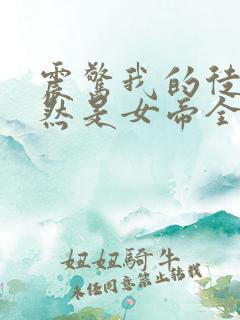 震驚我的徒
然是女帝全
妞妞騎牛
未经同意禁止转载